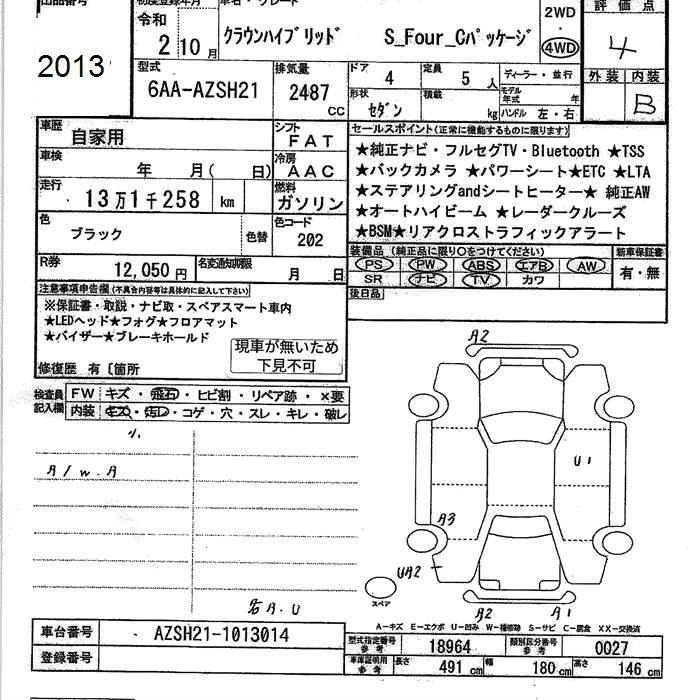 出品番号
2013
初度登録年月
令和
2 10 月
車名・グレード
クラウンハイブリッド S_Four_Cパッケージ
2WD
・
4WD
評価点
4
外装 内装
B
型式
6AA-AZSH21
排気量
2487
CC
ドア
4
定員
5 人
形状
セダン
積載
kg
ディーラー・並行
モデル
年式 年
ハンドル 左・右
車歴
自家用
シフト
FAT
車検
年 月( 日)
冷房
AAC
走行
13万1千258 km
燃料
ガソリン
色
ブラック
色替
色コード
202
R券
12,050円
名変通知期限
月 日
セールスポイント(正常に機能するものに限ります)
★純正ナビ・フルセグTV・Bluetooth ★TSS
★バックカメラ ★パワーシート★ETC ★LTA
★ステアリングandシートヒーター★ 純正AW
★オートハイビーム ★レーダークルーズ
★BSM★リアクロストラフィックアラート
装備品 (純正品に限り○をつけてください)
新車保証書
PS PW ABS エアB AW
SR ナビ TV カワ
有・無
後日品
注意事項申告欄(不具合内容等は具体的に記入して下さい)
※保証書・取説・ナビ取・スペアスマート車内
★LEDヘッド★フォグ★フロアマット
★バイザー★ブレーキホールド
現車が無いため
下見不可
修復歴 有〔箇所
検査員
記入欄
FW キズ・飛石・ヒビ割・リペア跡・×要
内装 キズ・汚レ・コゲ・穴・スレ・キレ・破レ
A/W.A
A2
U1
A3
UA2
スペア
A2
A1
A.U
A-キズ E-エクボ U-凹み W-補修跡 S-サビ C-腐食 XX-交換済
車台番号
AZSH21-1013014
登録番号
型式指定番号
参考
18964
類別区分番号
参考
0027
車庫証明用
参考
長さ 491 cm
幅 180 cm
高さ 146 cm